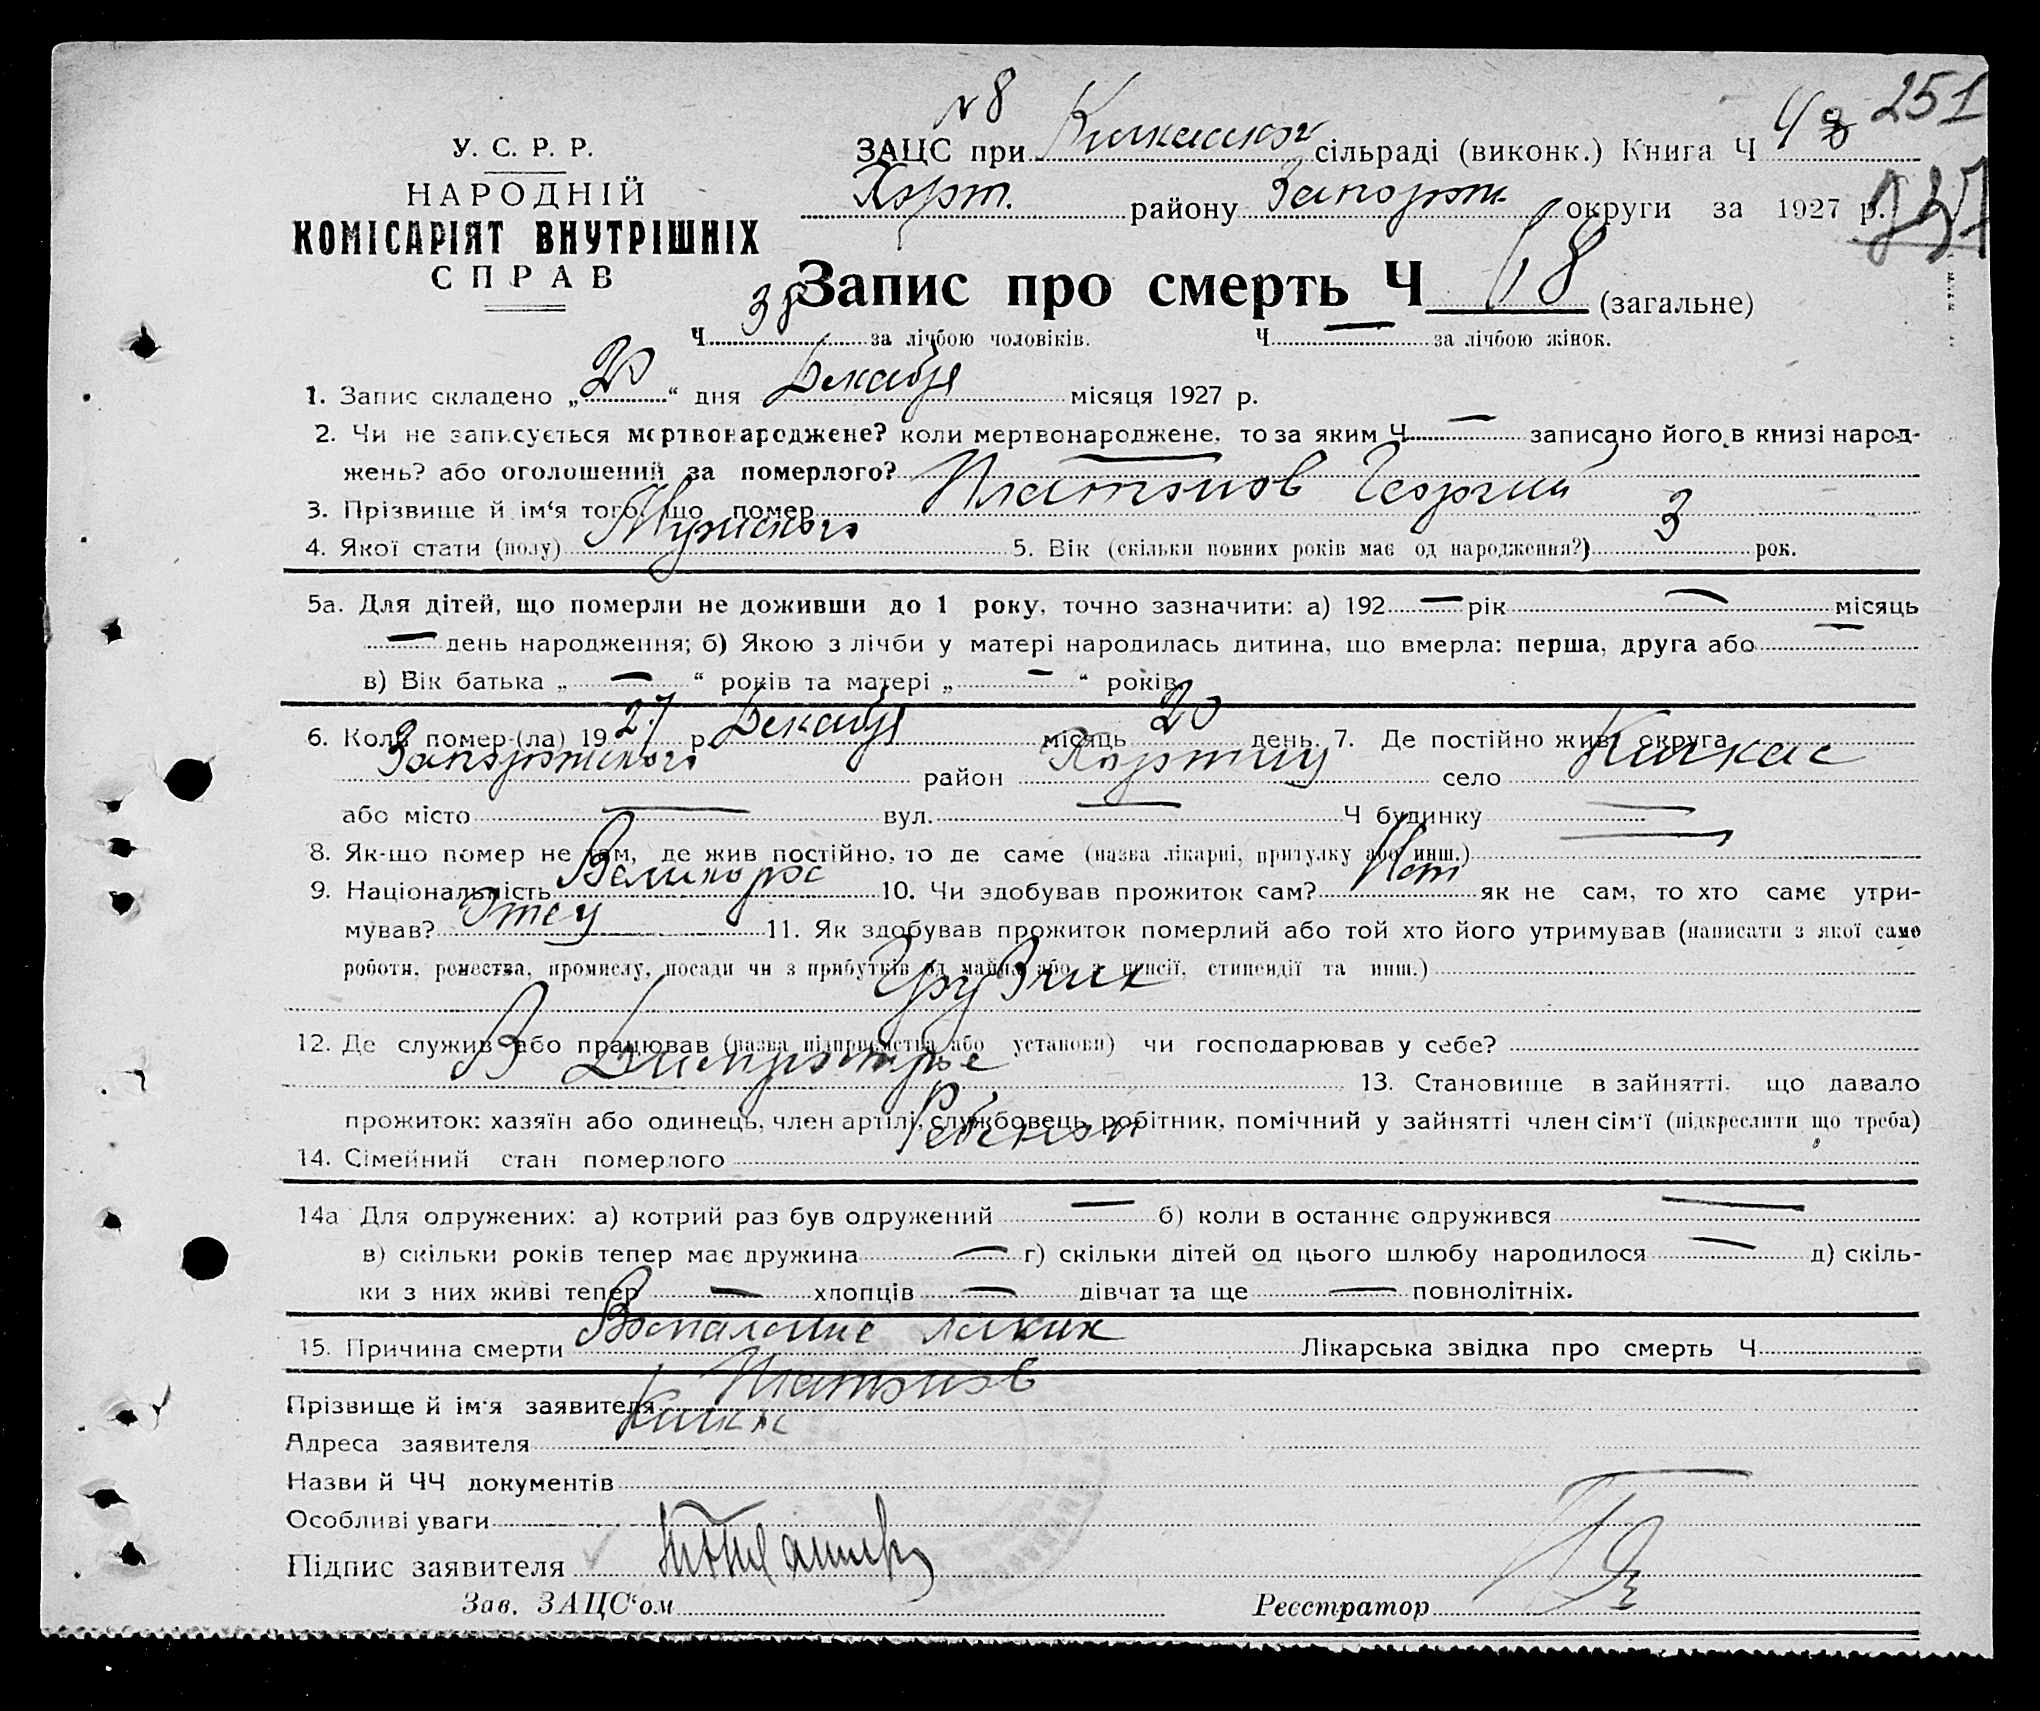 № 8
251
У. С. Р. Р.
НАРОДНІЙ
КОМІСАРІЯТ ВНУТРІШНІХ
СПРАВ
ЗАЦС при Кичкаской сільраді (виконк.) Книга Ч 4
Хорт. району Запорож. округи за 1927 р.
Запис про смерть Ч 68 (загальне)
Ч 38 за лічбою чоловіків. Ч — за лічбою жінок.
1. Запис складено „20“ дня Декабря місяця 1927 р.
2. Чи не записується мертвонароджене? коли мертвонароджене, то за яким Ч — записано його в книзі народ-
жень? або оголошений за померлого? —
3. Прізвище й ім‘я того, що помер Платонов Георгий
4. Якої стати (полу) Мужского 5. Вік (скільки повних років має од народження?) 3 рок.
5а. Для дітей, що померли не доживши до 1 року, точно зазначити: а) 192 — рік — місяць
— день народження; б) Якою з лічби у матері народилась дитина, що вмерла: перша, друга або —
в) Вік батька „ — “ років та матері „ — “ років
6. Коли помер-(ла) 1927 р. Декабря місяць 20 день. 7. Де постійно жив: округа
Запорожского район Хортиц село Кичкас
або місто — вул. — Ч будинку —
8. Як-що помер не там, де жив постійно, то де саме (назва лікарні, притулку або инш.) —
9. Національність Великорос 10. Чи здобував прожиток сам? Нет як не сам, то хто саме утри-
мував? Отец 11. Як здобував прожиток померлий або той хто його утримував (написати з якої само
роботи, ремества, промислу, посади чи з прибутків од майна або з пенсії, стипендії та инш.)
Грузчик
12. Де служив або працював (назва підприємства або установи) чи господарював у себе?
В Днепрострое 13. Становище в зайнятті, що давало
прожиток: хазяїн або одинець, член артілі, службовець, робітник, помічний у зайнятті член сім‘ї (підкреслити що треба)
14. Сімейний стан померлого Ребенок
14а Для одружених: а) котрий раз був одружений — б) коли в останнє одружився —
в) скільки років тепер має дружина — г) скільки дітей од цього шлюбу народилося — д) скіль-
ки з них живі тепер — хлопців — дівчат та ще — повнолітніх.
15. Причина смерти Воспаление легких Лікарська звідка про смерть Ч
Прізвище й ім‘я заявителя Платонов
Адреса заявителя Кичкас
Назви й ЧЧ документів
Особливі уваги
Підпис заявителя
Зав. ЗАЦС‘ом Реєстратор